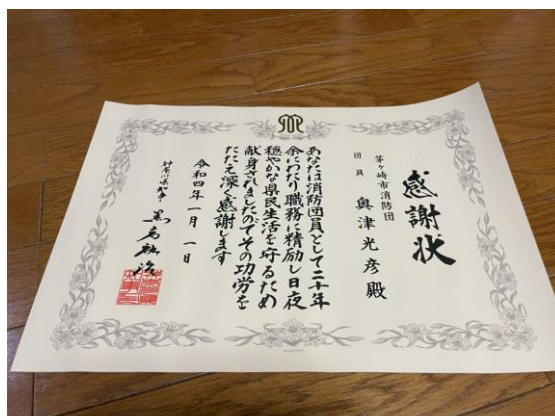 感謝状
茅ヶ崎市消防団
団員 奥津光彦殿
あなたは消防団員として二十年
余にわたり職務に精励し日夜
穏やかな県民生活を守るため
献身されましたのでその功労を
たたえ深く感謝します
令和四年一月一日
神奈川県知事 黒岩祐治